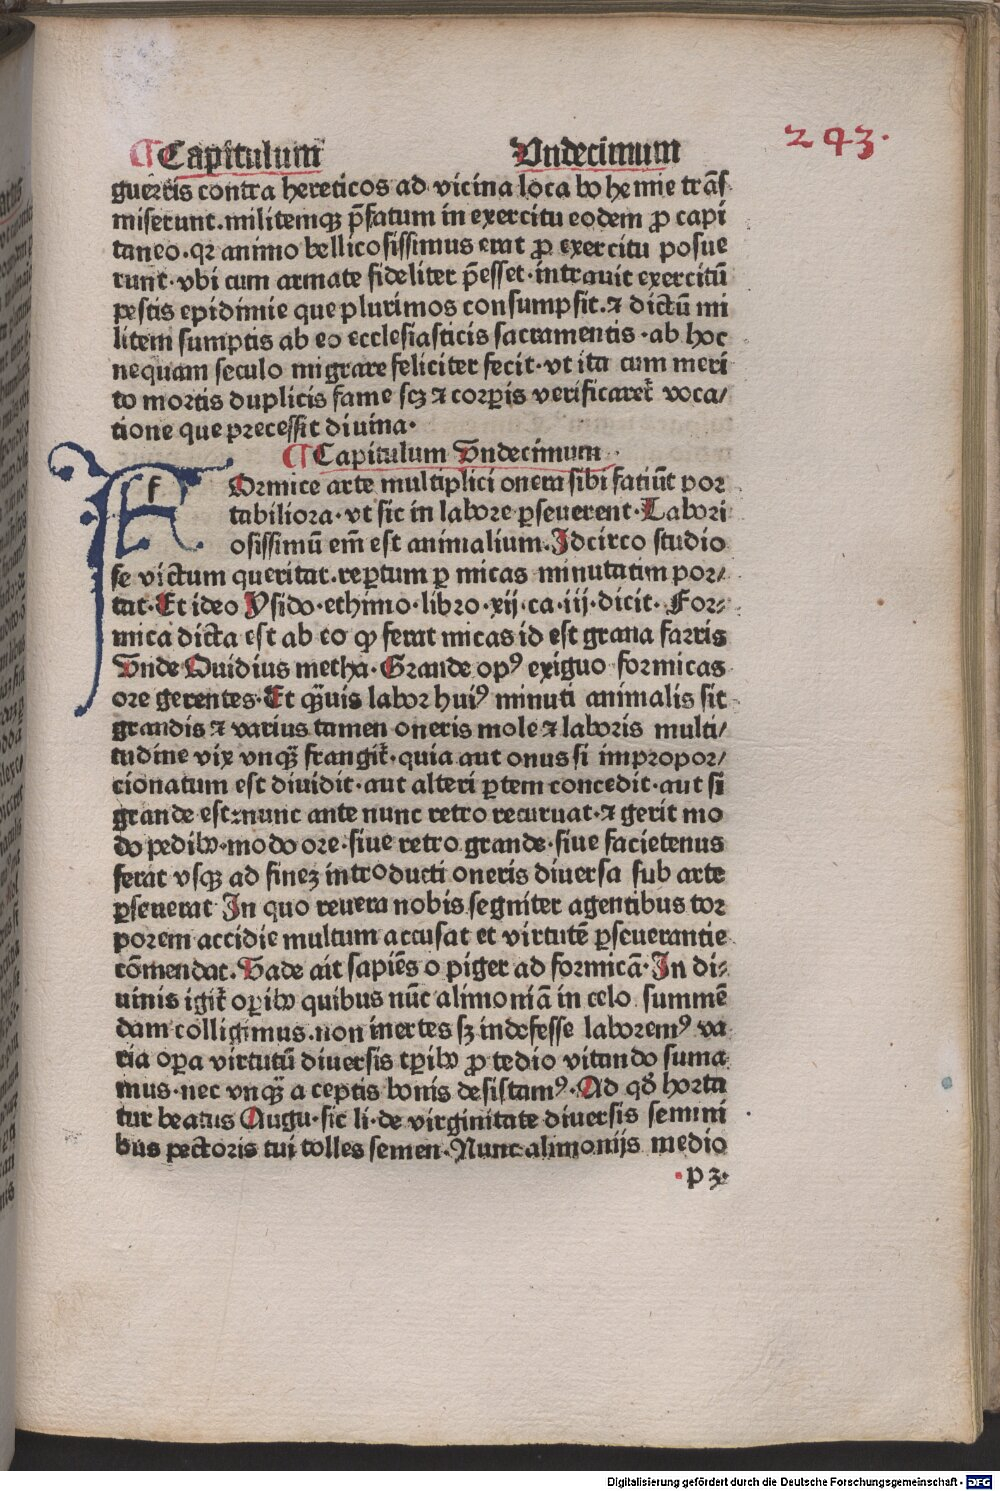 ¶Capitulum Vndecimum
293.
guerris contra hereticos ad vicina loca bohemie trãſ
miſerunt.militemqʒ p̄fatum in exercitu eodem ꝓ capi
taneo.qꝛ animo bellicoſiſſimus erat ꝓ exercitu poſue
runt·vbi cum armate fideliter p̄eſſet·intrauit exercitũ
peſtis epidimie que plurimos conſumpſit.⁊ dictũ mi
litem ſumptis ab eo eccleſiaſticis ſacramentis·ab hoc
nequam ſeculo migrare feliciter fecit·vt ita cum meri
to mortis duplicis fame ſcʒ ⁊ corꝑis verificaret᷑ voca/
tione que preceſſit diuina·
¶Capitulum Vndecimum·
f Ormice arte multiplici onera ſibi fatiũt por
tabiliora·vt ſic in labore ꝑſeuerent·Labori
oſiſſimũ em̄ eſt animalium.Idcirco ſtudio
ſe victum queritat.reꝑtum ꝑ micas minutatim por/
tat·Et ideo Yſido·ethimo·libro·xij·ca·iij·dicit· For/
mica dicta eſt ab eo ꝙ ferat micas id eſt grana farris
Vnde Ouidius metha·Grande opꝰ exiguo formicas
ore gerentes·Et qᷓuis labor huiꝰ minuti animalis ſit
grandis ⁊ varius tamen oneris mole ⁊ laboris multi/
tudine vix vnqᷓ frangit᷑·quia aut onus ſi impropor/
cionatum eſt diuidit·aut alteri ꝑtem concedit·aut ſi
grande eſt:nunc ante nunc retro recuruat·⁊ gerit mo
do pedibꝰ·modo ore·ſiue retro grande·ſiue facietenus
ferat vſqʒ ad fineʒ introducti oneris diuerſa ſub arte
ꝑſeuerat In quo reuera nobis ſegniter agentibus tor
porem accidie multum accuſat et virtutẽ ꝑſeuerantie
cõmendat.Vade ait ſapiẽs o piger ad formicã·In di/
uinis igit᷑ oꝑibꝰ quibus nũc alimoniã in celo ſummẽ
dam colligimus.non inertes ſʒ indefeſſe laboremꝰ va
ria oꝑa virtutũ diuerſis tꝑibꝰ ꝓ tedio vitando ſuma
mus·nec vnqᷓ a ceptis bonis deſiſtamꝰ·Ad qď horta
tur beatus Augu·ſic li·de virginitate diuerſis ſemini
bus pectoris tui tolles ſemen·Nunc alimonijs medio
·p 3·
Digitalisierung gefördert durch die Deutsche Forschungsgemeinschaft - DFG